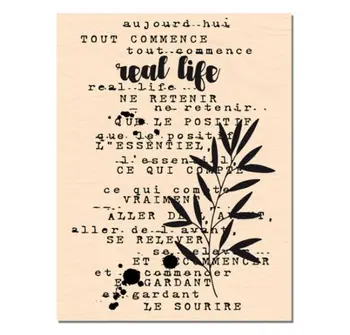 aujourd hui
TOUT COMMENCE
tout commence
real life
real life
NE RETENIR
ne retenir
QUE LE POSITIF
que le positif
L"ESSENTIEL,
l'essentiel,
CE QUI COMPTE
ce qui compte
VRAIMENT
ALLER DE L'AVANT,
aller de l'avant
SE RELEVER
se relever
ET RECOMMENCER
et commender
EN GARDANT
en gardant
LE SOURIRE